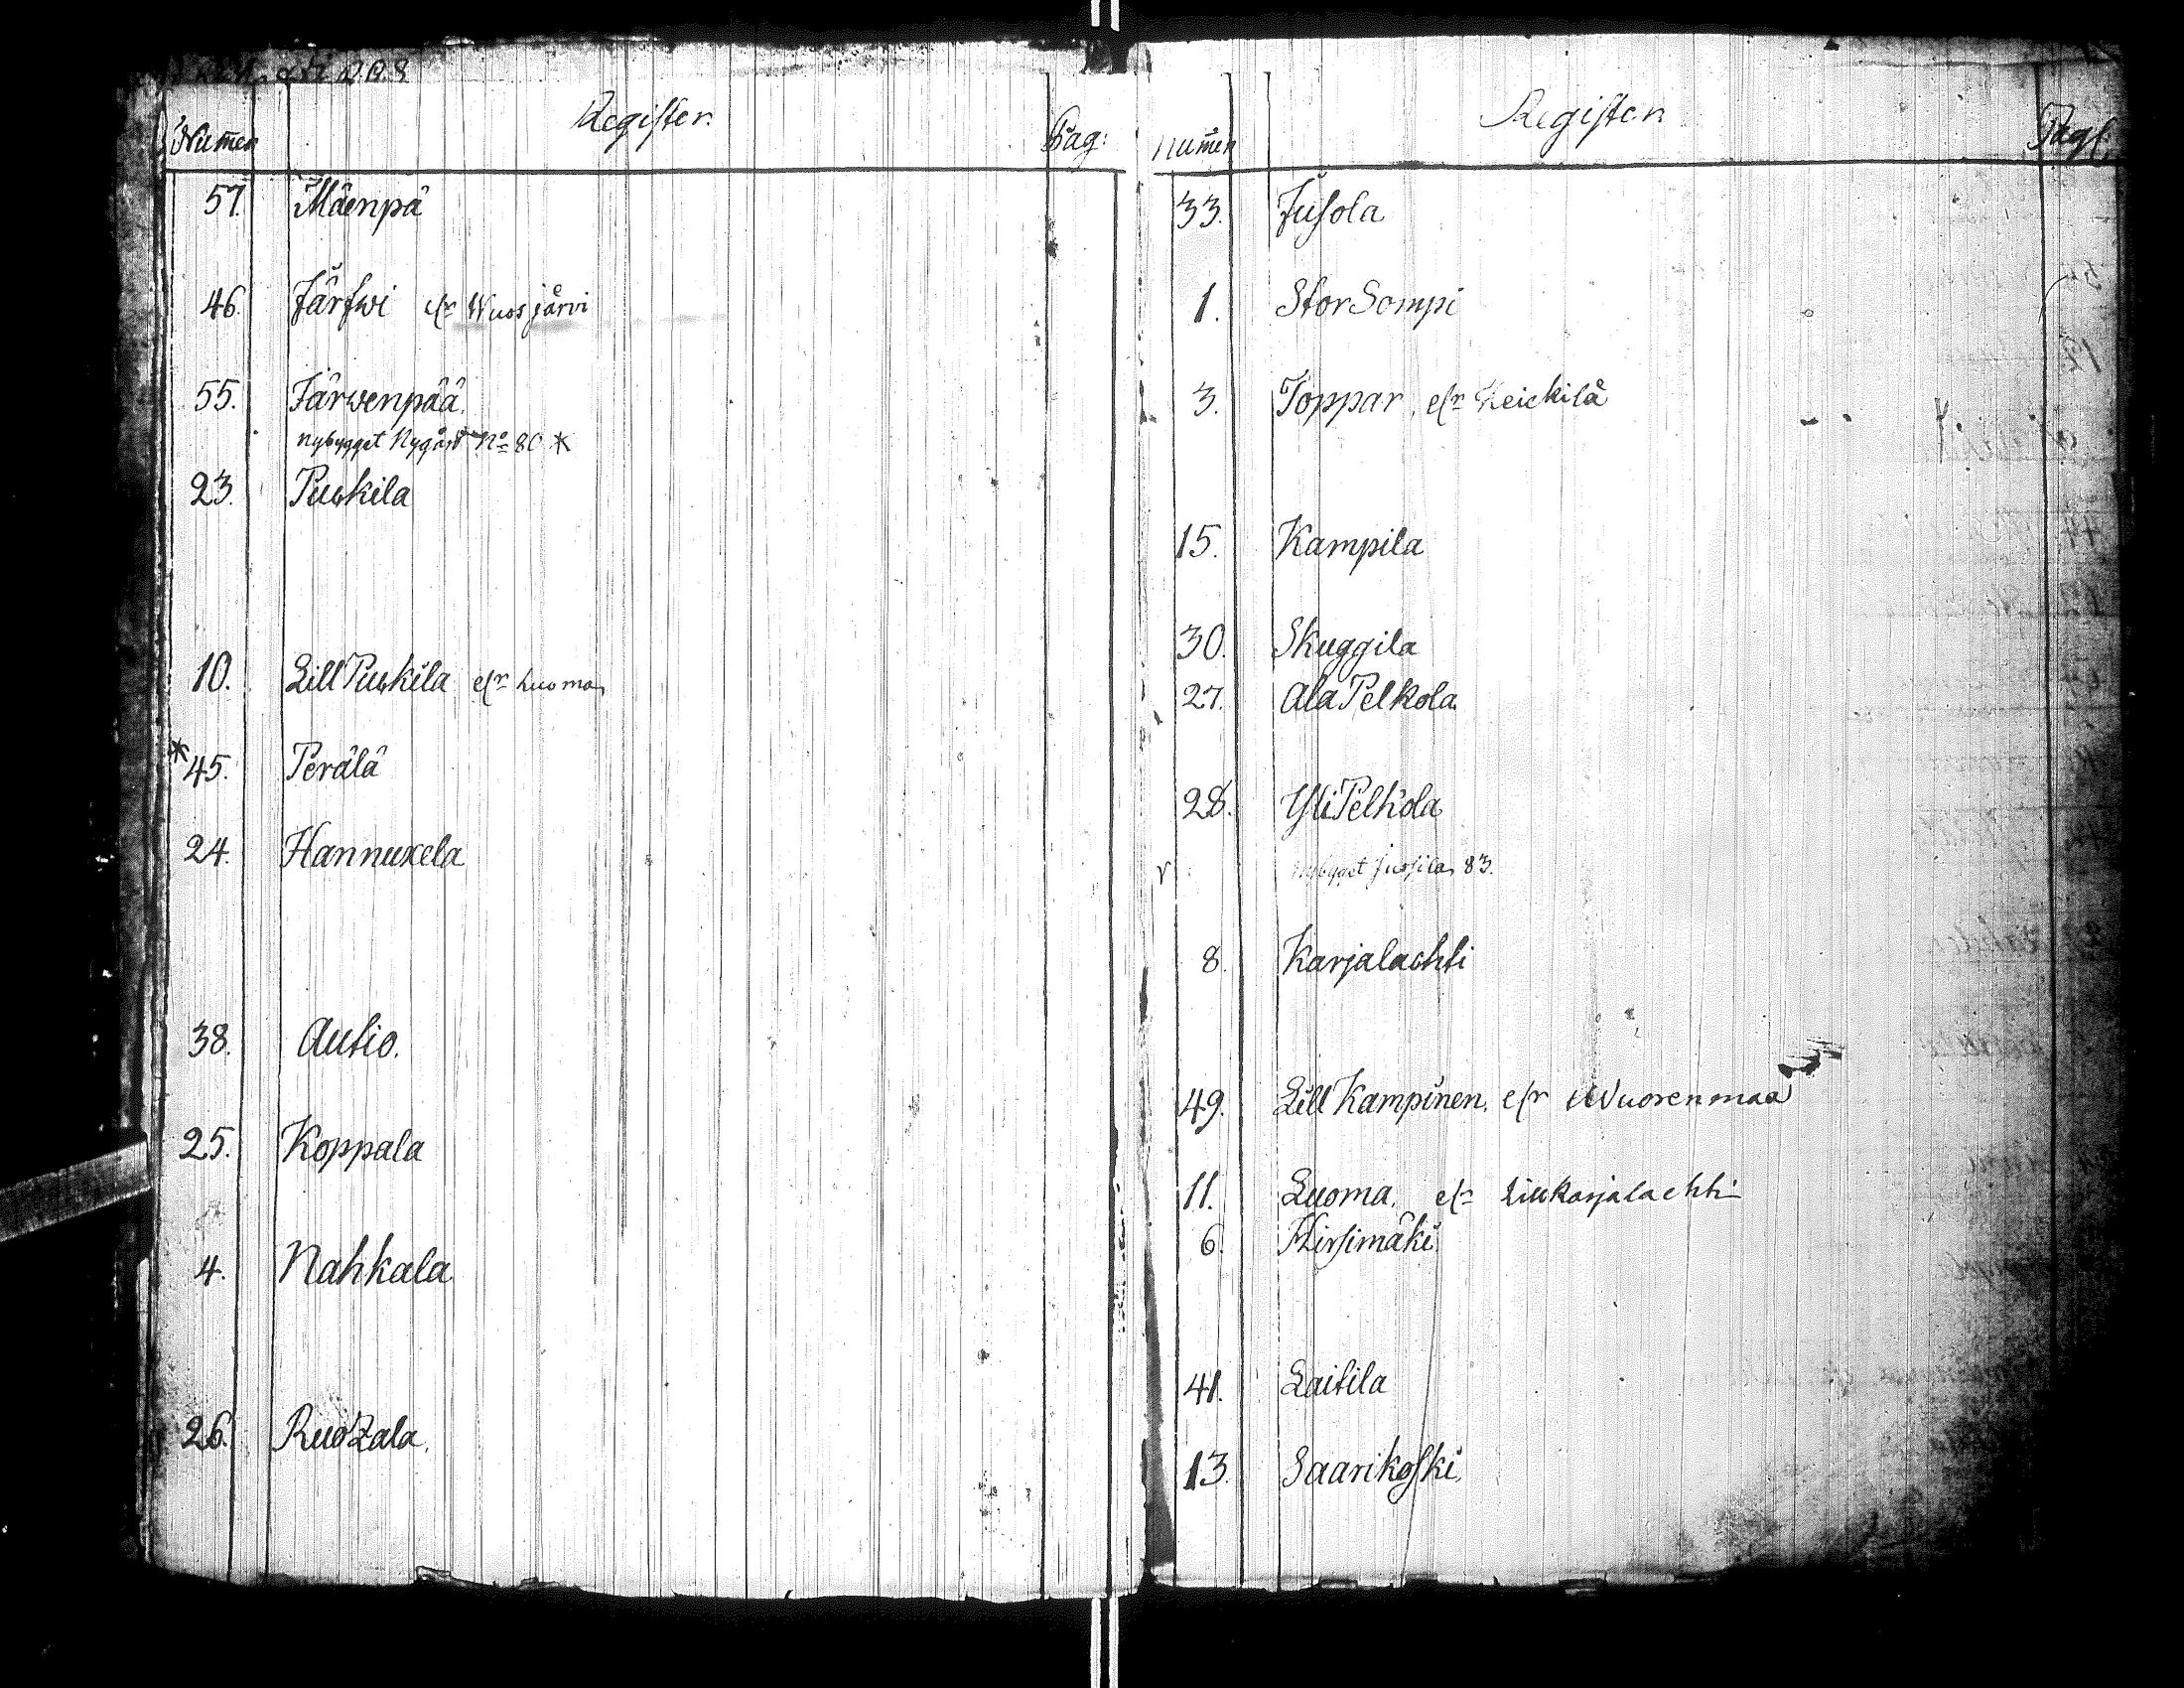 Register
Numer Pag:
57. Mäenpä
46. Järfwi elr Wuosjärvi
55. Järwenpää
nybygget Nygård No 80 *
23. Puskila
10. Lill Puskila elr Luoma
* 45. Perälä
24. Hannuxela
38. Autio.
25. Koppala
4. Nahkala
26. Ruozala.
Register
Numer Pag:
33. Jusola
1. StorSompi
3. Toppar, elr Keickilä
15. Kampila
30. Skuggila
27. Ala Pelkola
28. Yli Pelkola
nybygget Jussila 83.
8. Karjalachti
49. Lill Kampinen. elr Wuorenmaa
11. Luoma. elr Lill Karjalachti
6. Hirsimäki
41. Laitila
13. Saarikoski